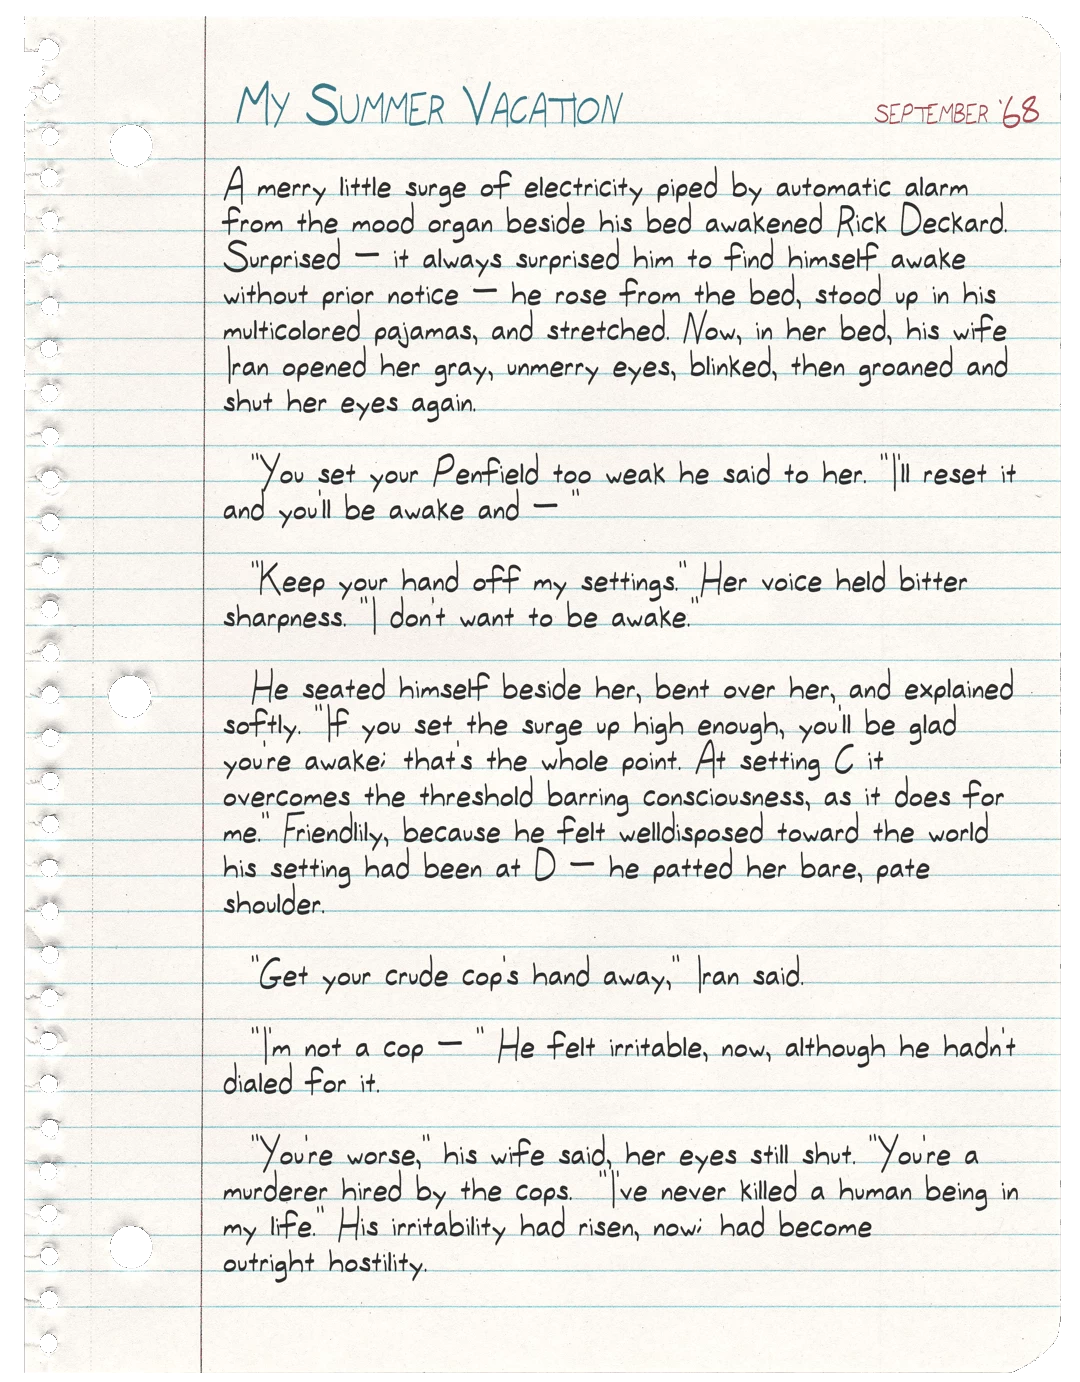 My Summer Vacation
September '68
A merry little surge of electricity piped by automatic alarm
from the mood organ beside his bed awakened Rick Deckard.
Surprised — it always surprised him to find himself awake
without prior notice — he rose from the bed, stood up in his
multicolored pajamas, and stretched. Now, in her bed, his wife
Iran opened her gray, unmerry eyes, blinked, then groaned and
shut her eyes again.
"You set your Penfield too weak he said to her. "I'll reset it
and you'll be awake and — "
"Keep your hand off my settings." Her voice held bitter
sharpness. "I don't want to be awake."
He seated himself beside her, bent over her, and explained
softly. "If you set the surge up high enough, you'll be glad
you're awake; that's the whole point. At setting C it
overcomes the threshold barring consciousness, as it does for
me." Friendlily, because he felt welldisposed toward the world
his setting had been at D — he patted her bare, pate
shoulder.
"Get your crude cop's hand away," Iran said.
"I'm not a cop — " He felt irritable, now, although he hadn't
dialed for it.
"You're worse," his wife said, her eyes still shut. "You're a
murderer hired by the cops. "I've never killed a human being in
my life." His irritability had risen, now; had become
outright hostility.